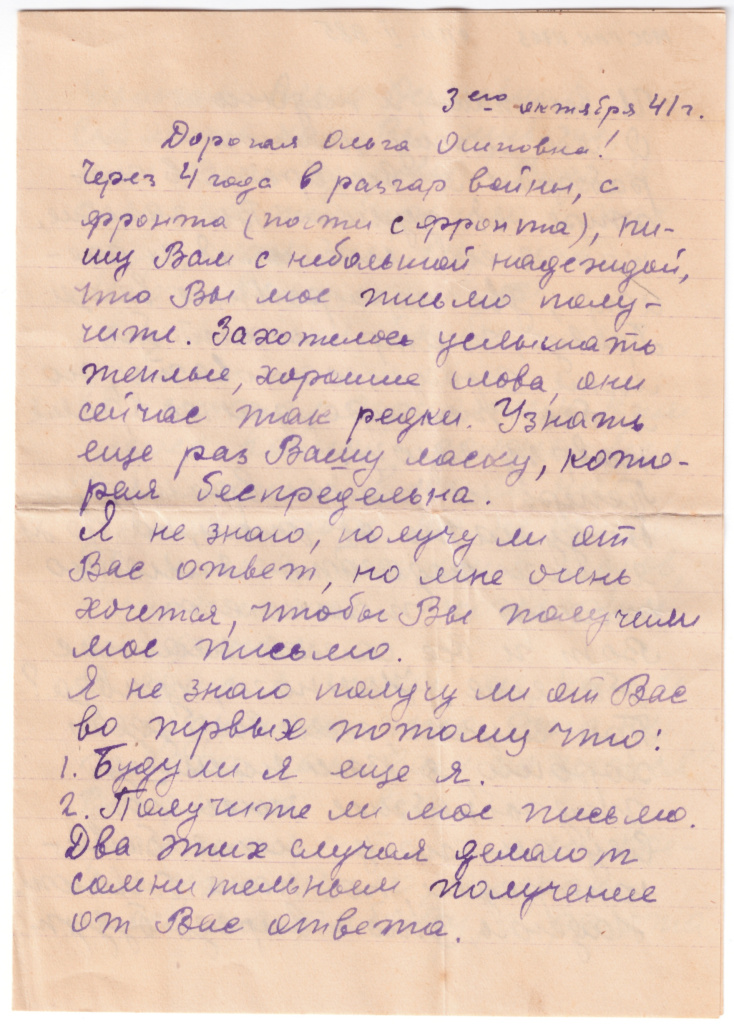 3его октября 41г.
Дорогая Ольга Осиповна!
Через 4 года в разгар войны, с
фронта (почти с фронта), пи-
шу Вам с небольшой надеждой,
что Вы мое письмо полу-
чите. Захотелось услышать
теплые, хорошие слова, они
сейчас так редки. Узнать
еще раз Вашу ласку, кото-
рая беспредельна.
Я не знаю, получу ли от
Вас ответ, но мне очень
хочется, чтобы Вы получили
мое письмо.
Я не знаю получу ли от Вас
во первых потому что:
1. Буду ли я еще я.
2. Получите ли мое письмо.
Два этих случая делают
сомнительным получение
от Вас ответа.